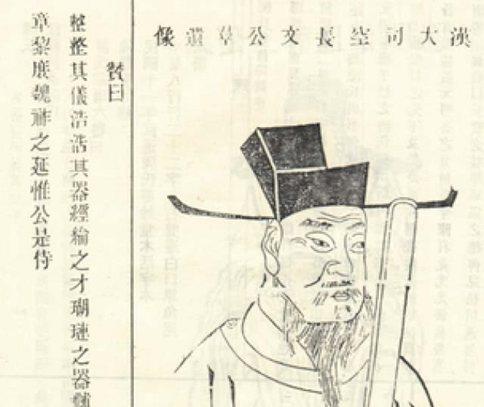 漢大司空長文公羣遺像
贊曰
整整其儀浩浩其器經綸之才瑚璉之器
章黎庶魏祚之延惟公是侍